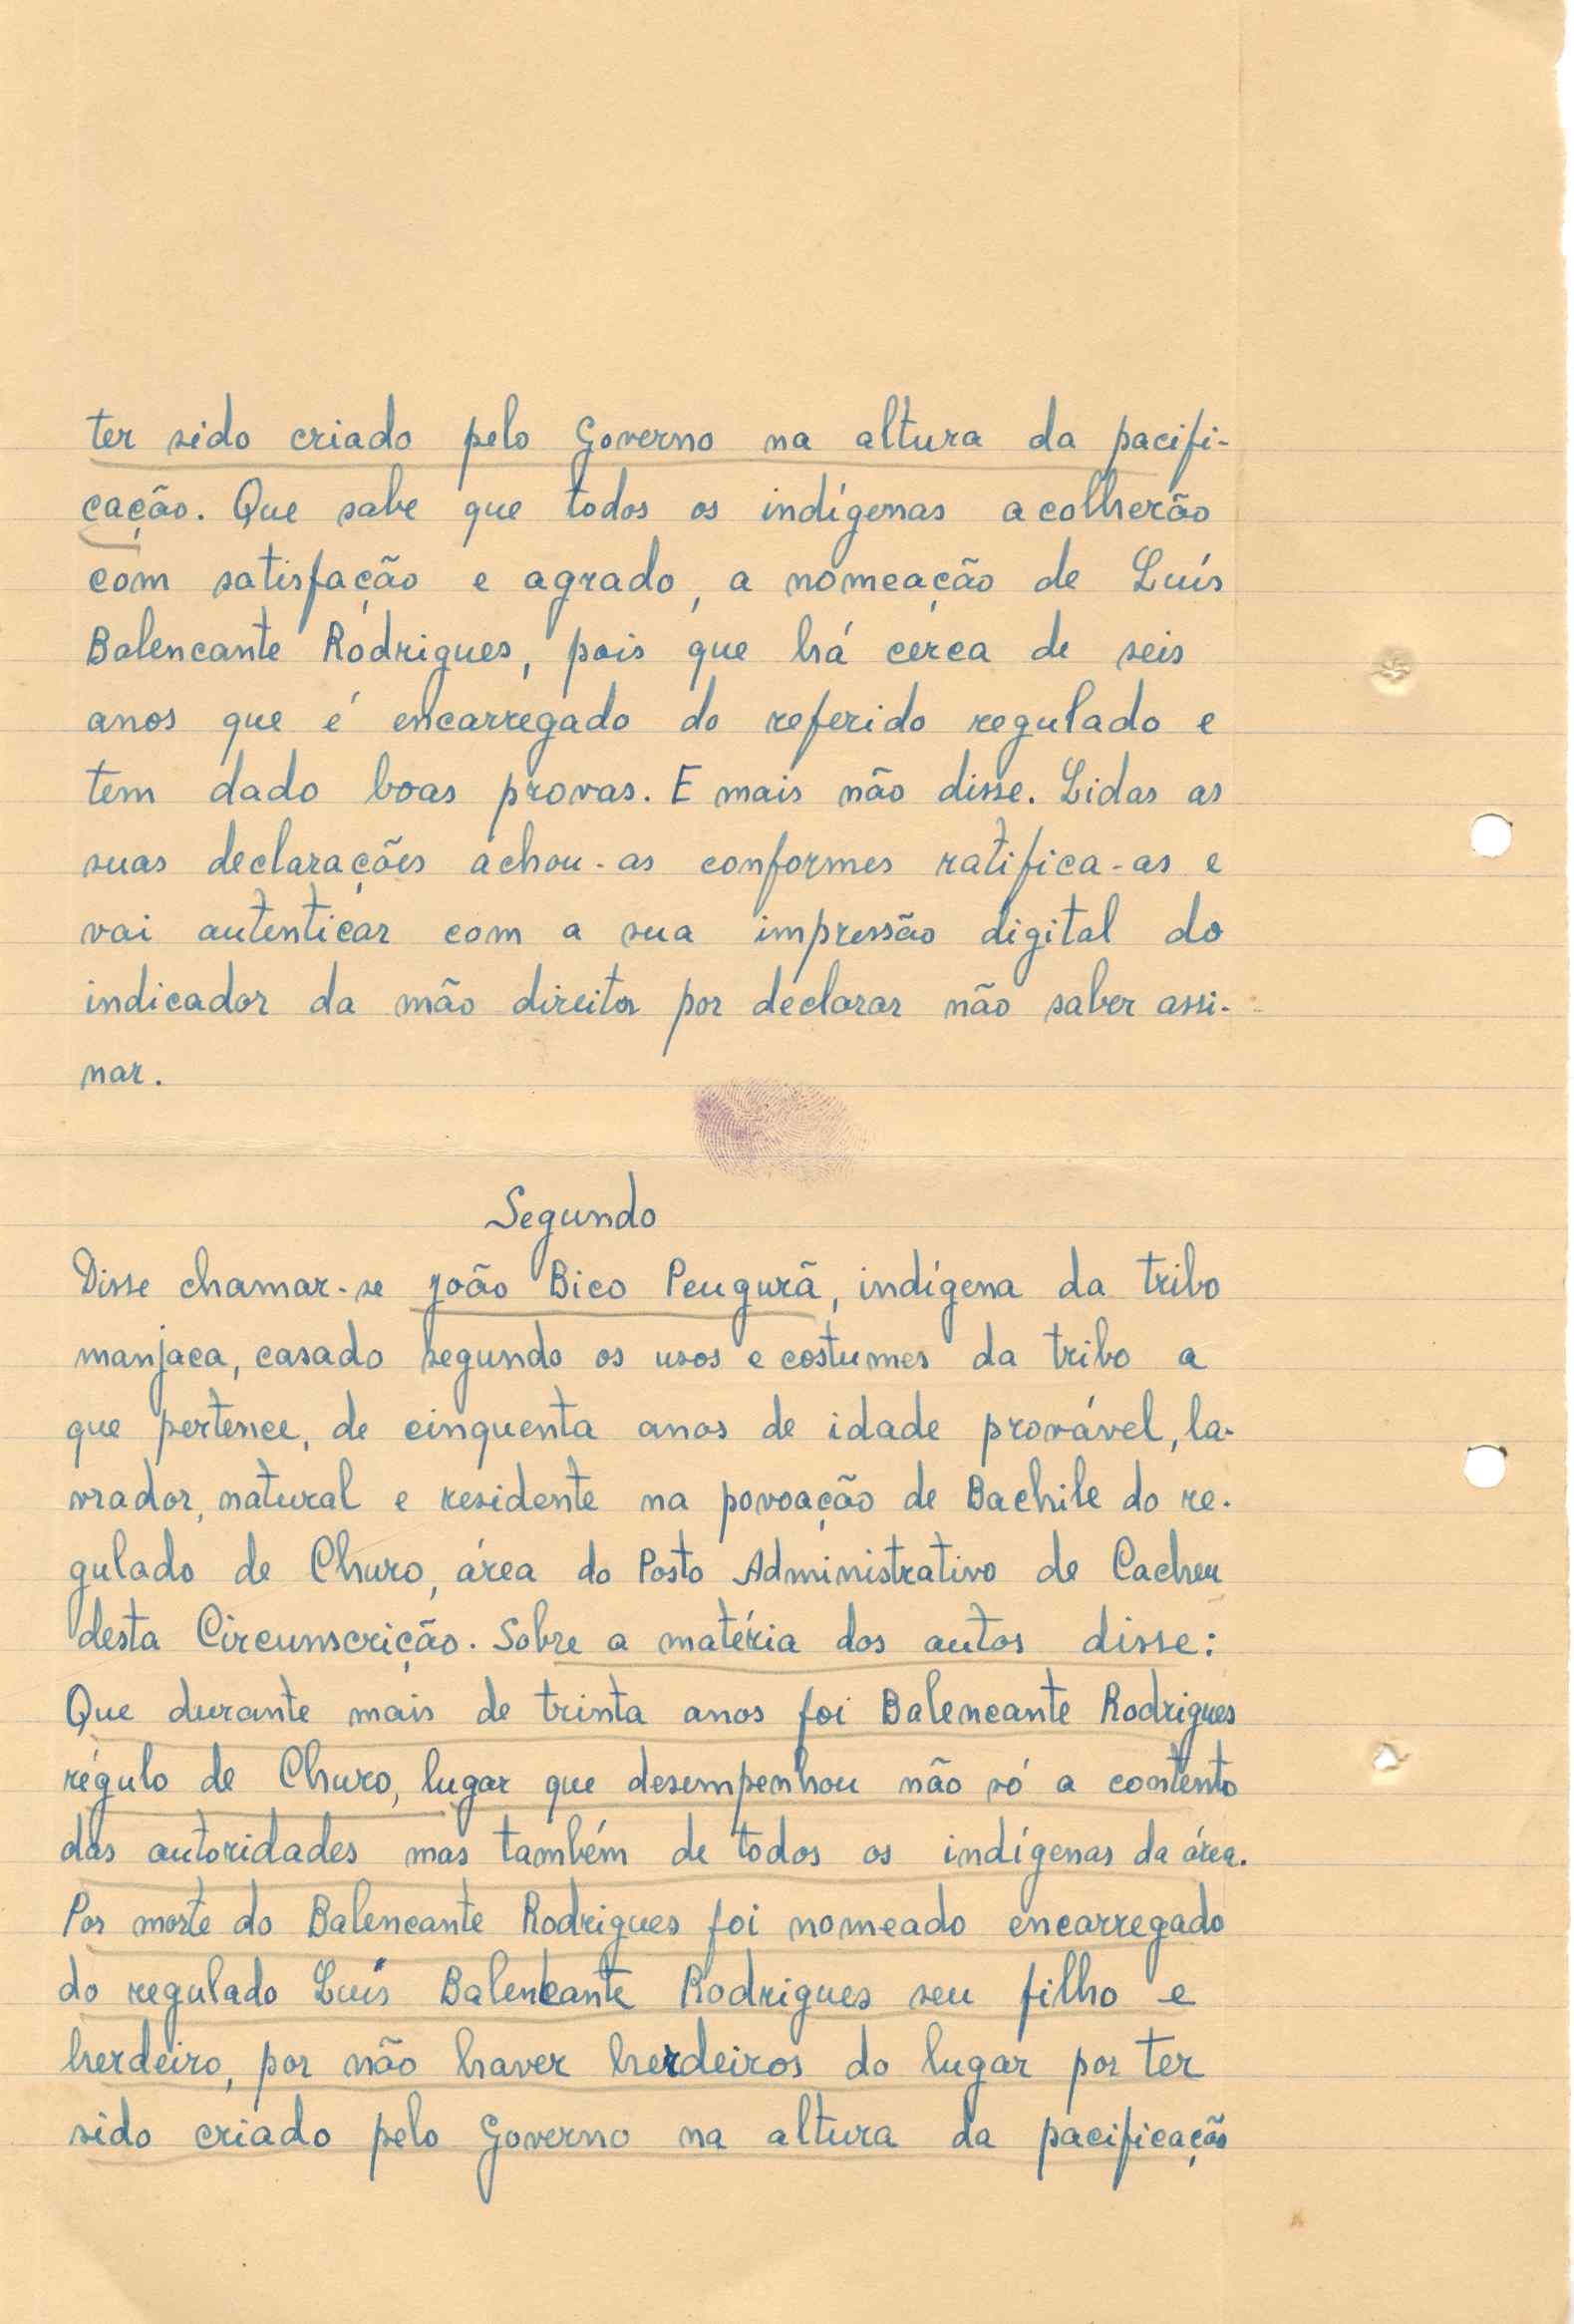 ter sido criado pelo Governo na altura da pacifi-
cação. Que sabe que todos os indígenas acolherão
com satisfação e agrado, a nomeação de Luís
Balencante Rodrigues, pois que há cêrca de seis
anos que é encarregado do referido regulado e
tem dado boas provas. E mais não disse. Lidas as
suas declarações achou-as conformes ratifica-as e
vai autenticar com a sua impressão digital do
indicador da mão direita por declarar não saber assi-
nar.
Segundo
Disse chamar-se João Bico Peugurã, indígena da tribo
manjaca, casado segundo os usos e costumes da tribo a
que pertence, de cinquenta anos de idade provável, la-
vrador, natural e residente na povoação de Bachile do re-
gulado de Churo, área do Posto Administrativo de Cacheu
desta Circunscrição. Sobre a matéria dos autos disse:
Que durante mais de trinta anos foi Balencante Rodrigues
régulo de Churo, lugar que desempenhou não só a contento
das autoridades mas também de todos os indígenas da área.
Por morte do Balencante Rodrigues foi nomeado encarregado
do regulado Luís Balencante Rodrigues seu filho e
herdeiro, por não haver herdeiros do lugar por ter
sido criado pelo Governo na altura da pacificação